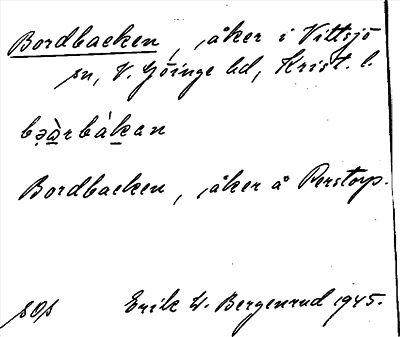 Bordbacken, åker i Vittsjö
sn, V. Göinge hd, Krist. l.
bə̣ὰrbákan
Bordbacken, åker å Perstorp.
sOs Erik W. Bergenrud 1945.